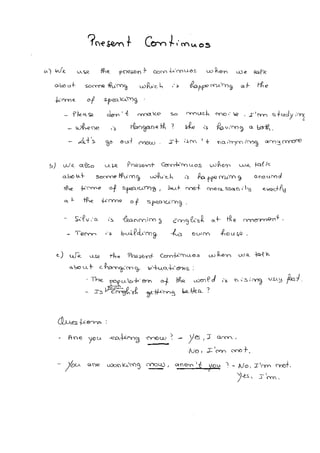 Present Continuos
a) We use the present continuos when we talk
about something which is happening at the
time of speaking.
- Please don't make so much noise. I'm studying
- Where is Margaret? She is having a bath.
- Let's go out now. It isn't raining anymore
b) We also use Present Continuos when we talk
about something which is happening around
the time of speaking, but not necessarily exactly
at the time of speaking.
- Silvia is learning English at the moment.
- Tom is building his own house.
c) We use the Present Continuos when we talk
about changing situations:
- The population of the world is rising very fast.
- Is your English getting better?
Questions:
- Are you eating now? - Yes, I am.
No, I'm not.
- You are working now, aren't you? - No. I'm not.
Yes, I'm.